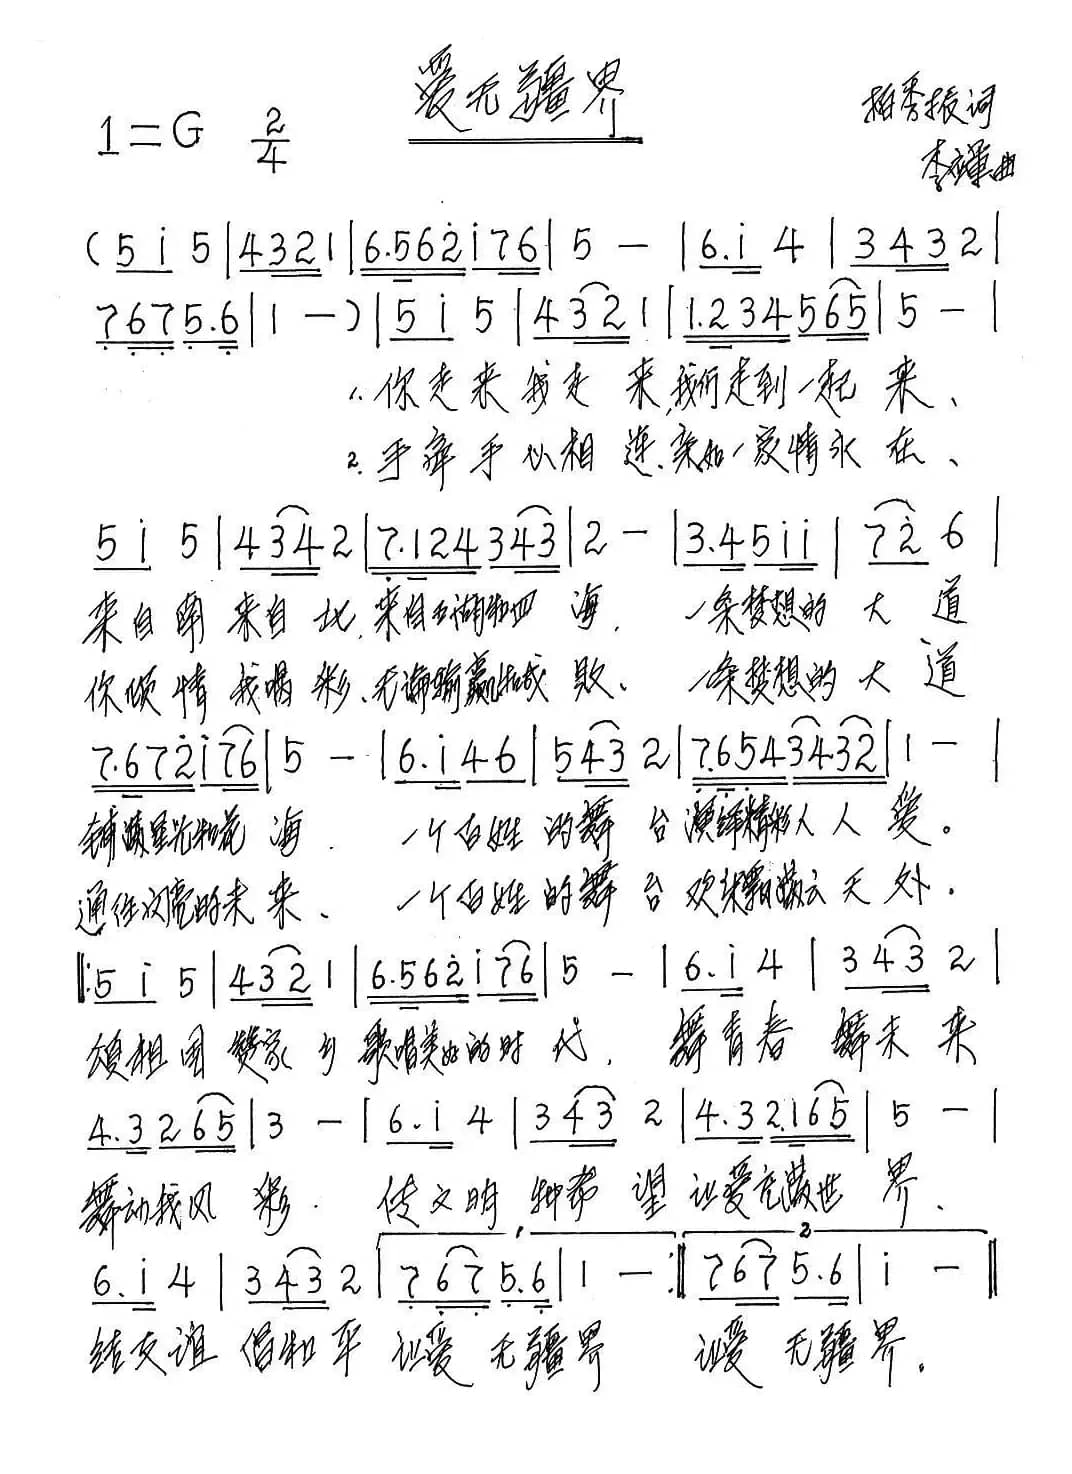 爱无疆界
1=G 2/4
柏秀振词
李 曲
(5 i 5|4321|6.562i76|5 —|6.i 4|3432|
7675.6|1 —)|5 i 5|4321|1.234565|5 —|
1.你走来我走来,我们走到一起来、
2.手牵手心相连、亲如一家情永在、
5 i 5|4342|7.124343|2 —|3.45ii|7 2 6|
来自南来自北,来自五湖和四海, 一条梦想的大道
你倾情我喝彩、无论输赢和成败、 一条梦想的大道
7.672i76|5 —|6.i46|5432|7.6543432|1 —|
铺满星光和花海. 一个百姓的舞台演绎精彩人人爱。
通往漂亮的未来、 一个百姓的舞台欢舞云天外.
‖:5 i 5|4321|6.562i76|5 —|6.i 4|3432|
颂祖国赞家乡歌唱美好的时代, 舞青春舞未来
4.3265|3 —|6.i 4|3432|4.32165|5 —|
舞动我风彩. 传文明种希望让爱充满世界、
6.i 4|3432|1.7675.6|1 —:‖2.7675.6|i —‖
结友谊倡和平让爱无疆界 让爱无疆界.